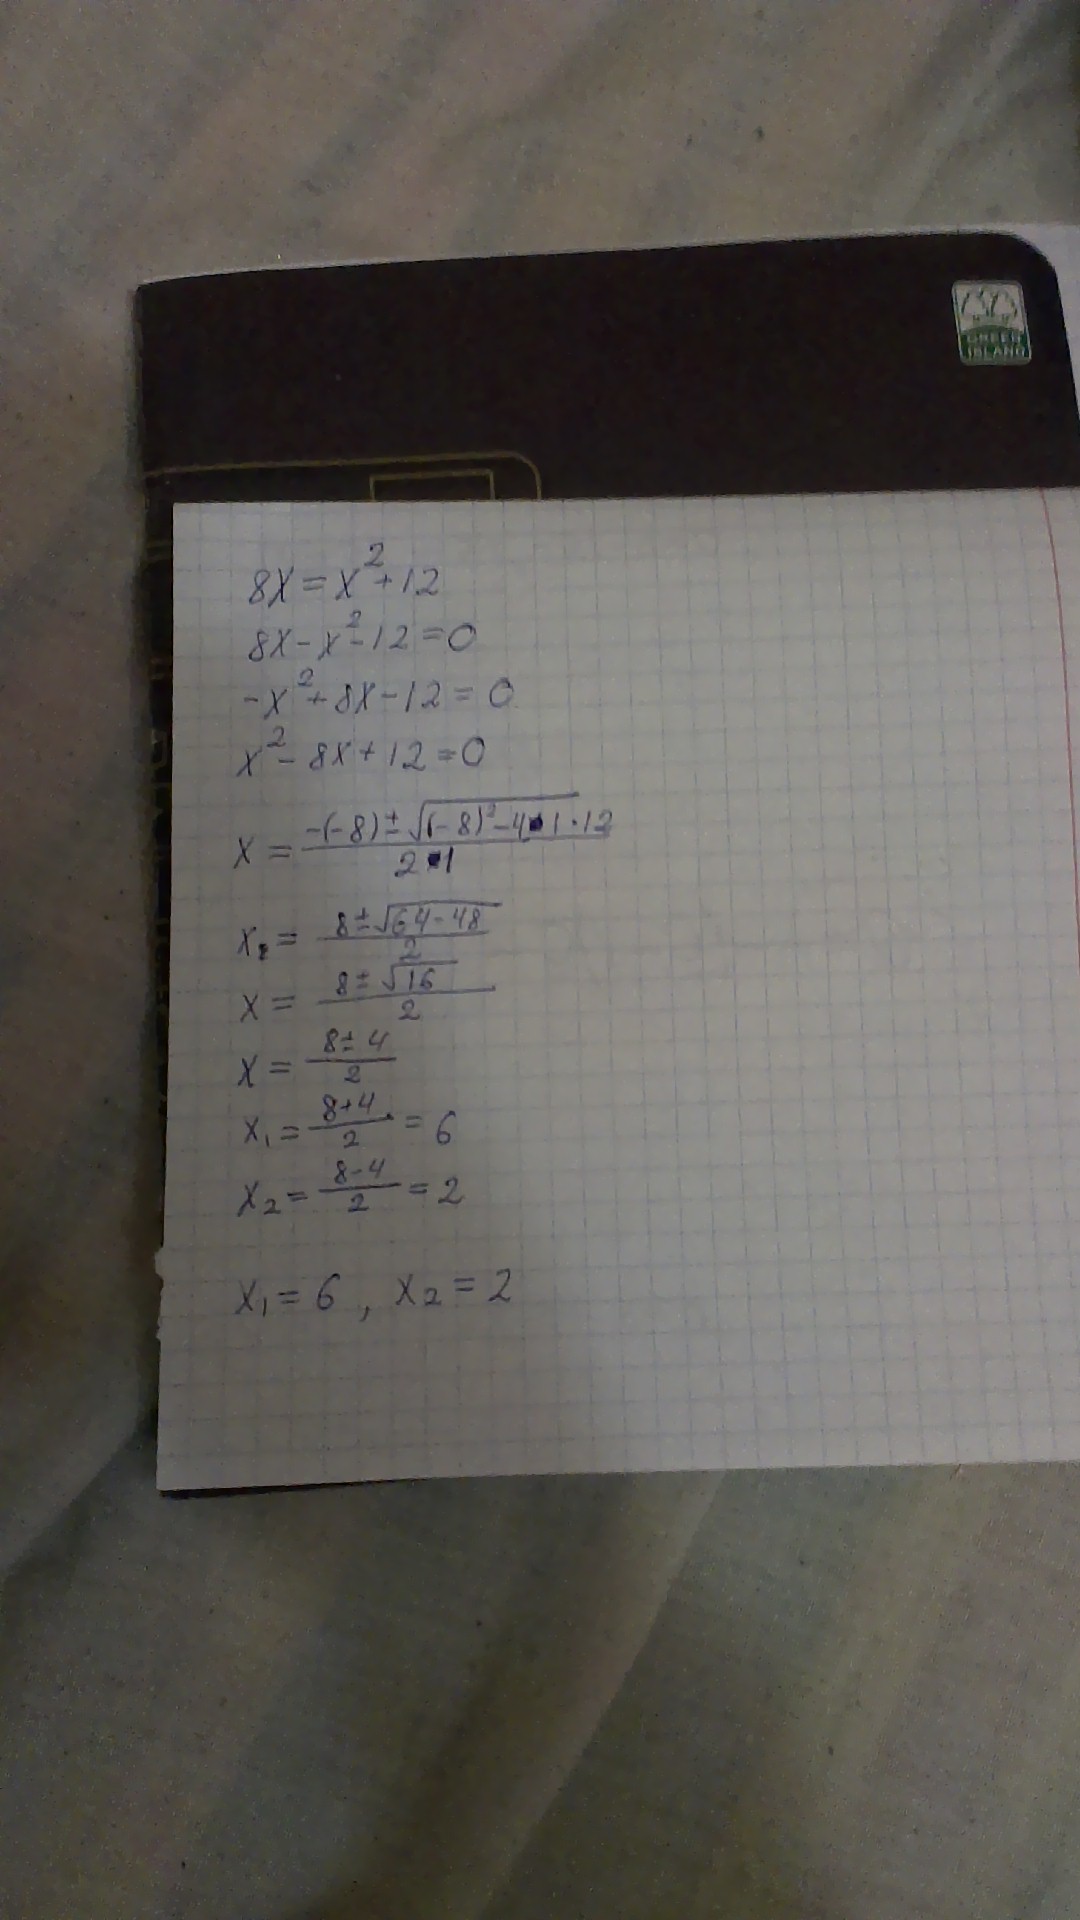 GREEN
ISLAND
8x = x² + 12
8x - x² - 12 = 0
-x² + 8x - 12 = 0
x² - 8x + 12 = 0
x = (-(-8) ± √((-8)² - 4·1·12)) / (2·1)
x = (8 ± √(64 - 48)) / 2
x = (8 ± √16) / 2
x = (8 ± 4) / 2
x₁ = (8+4) / 2 = 6
x₂ = (8-4) / 2 = 2
x₁ = 6 , x₂ = 2